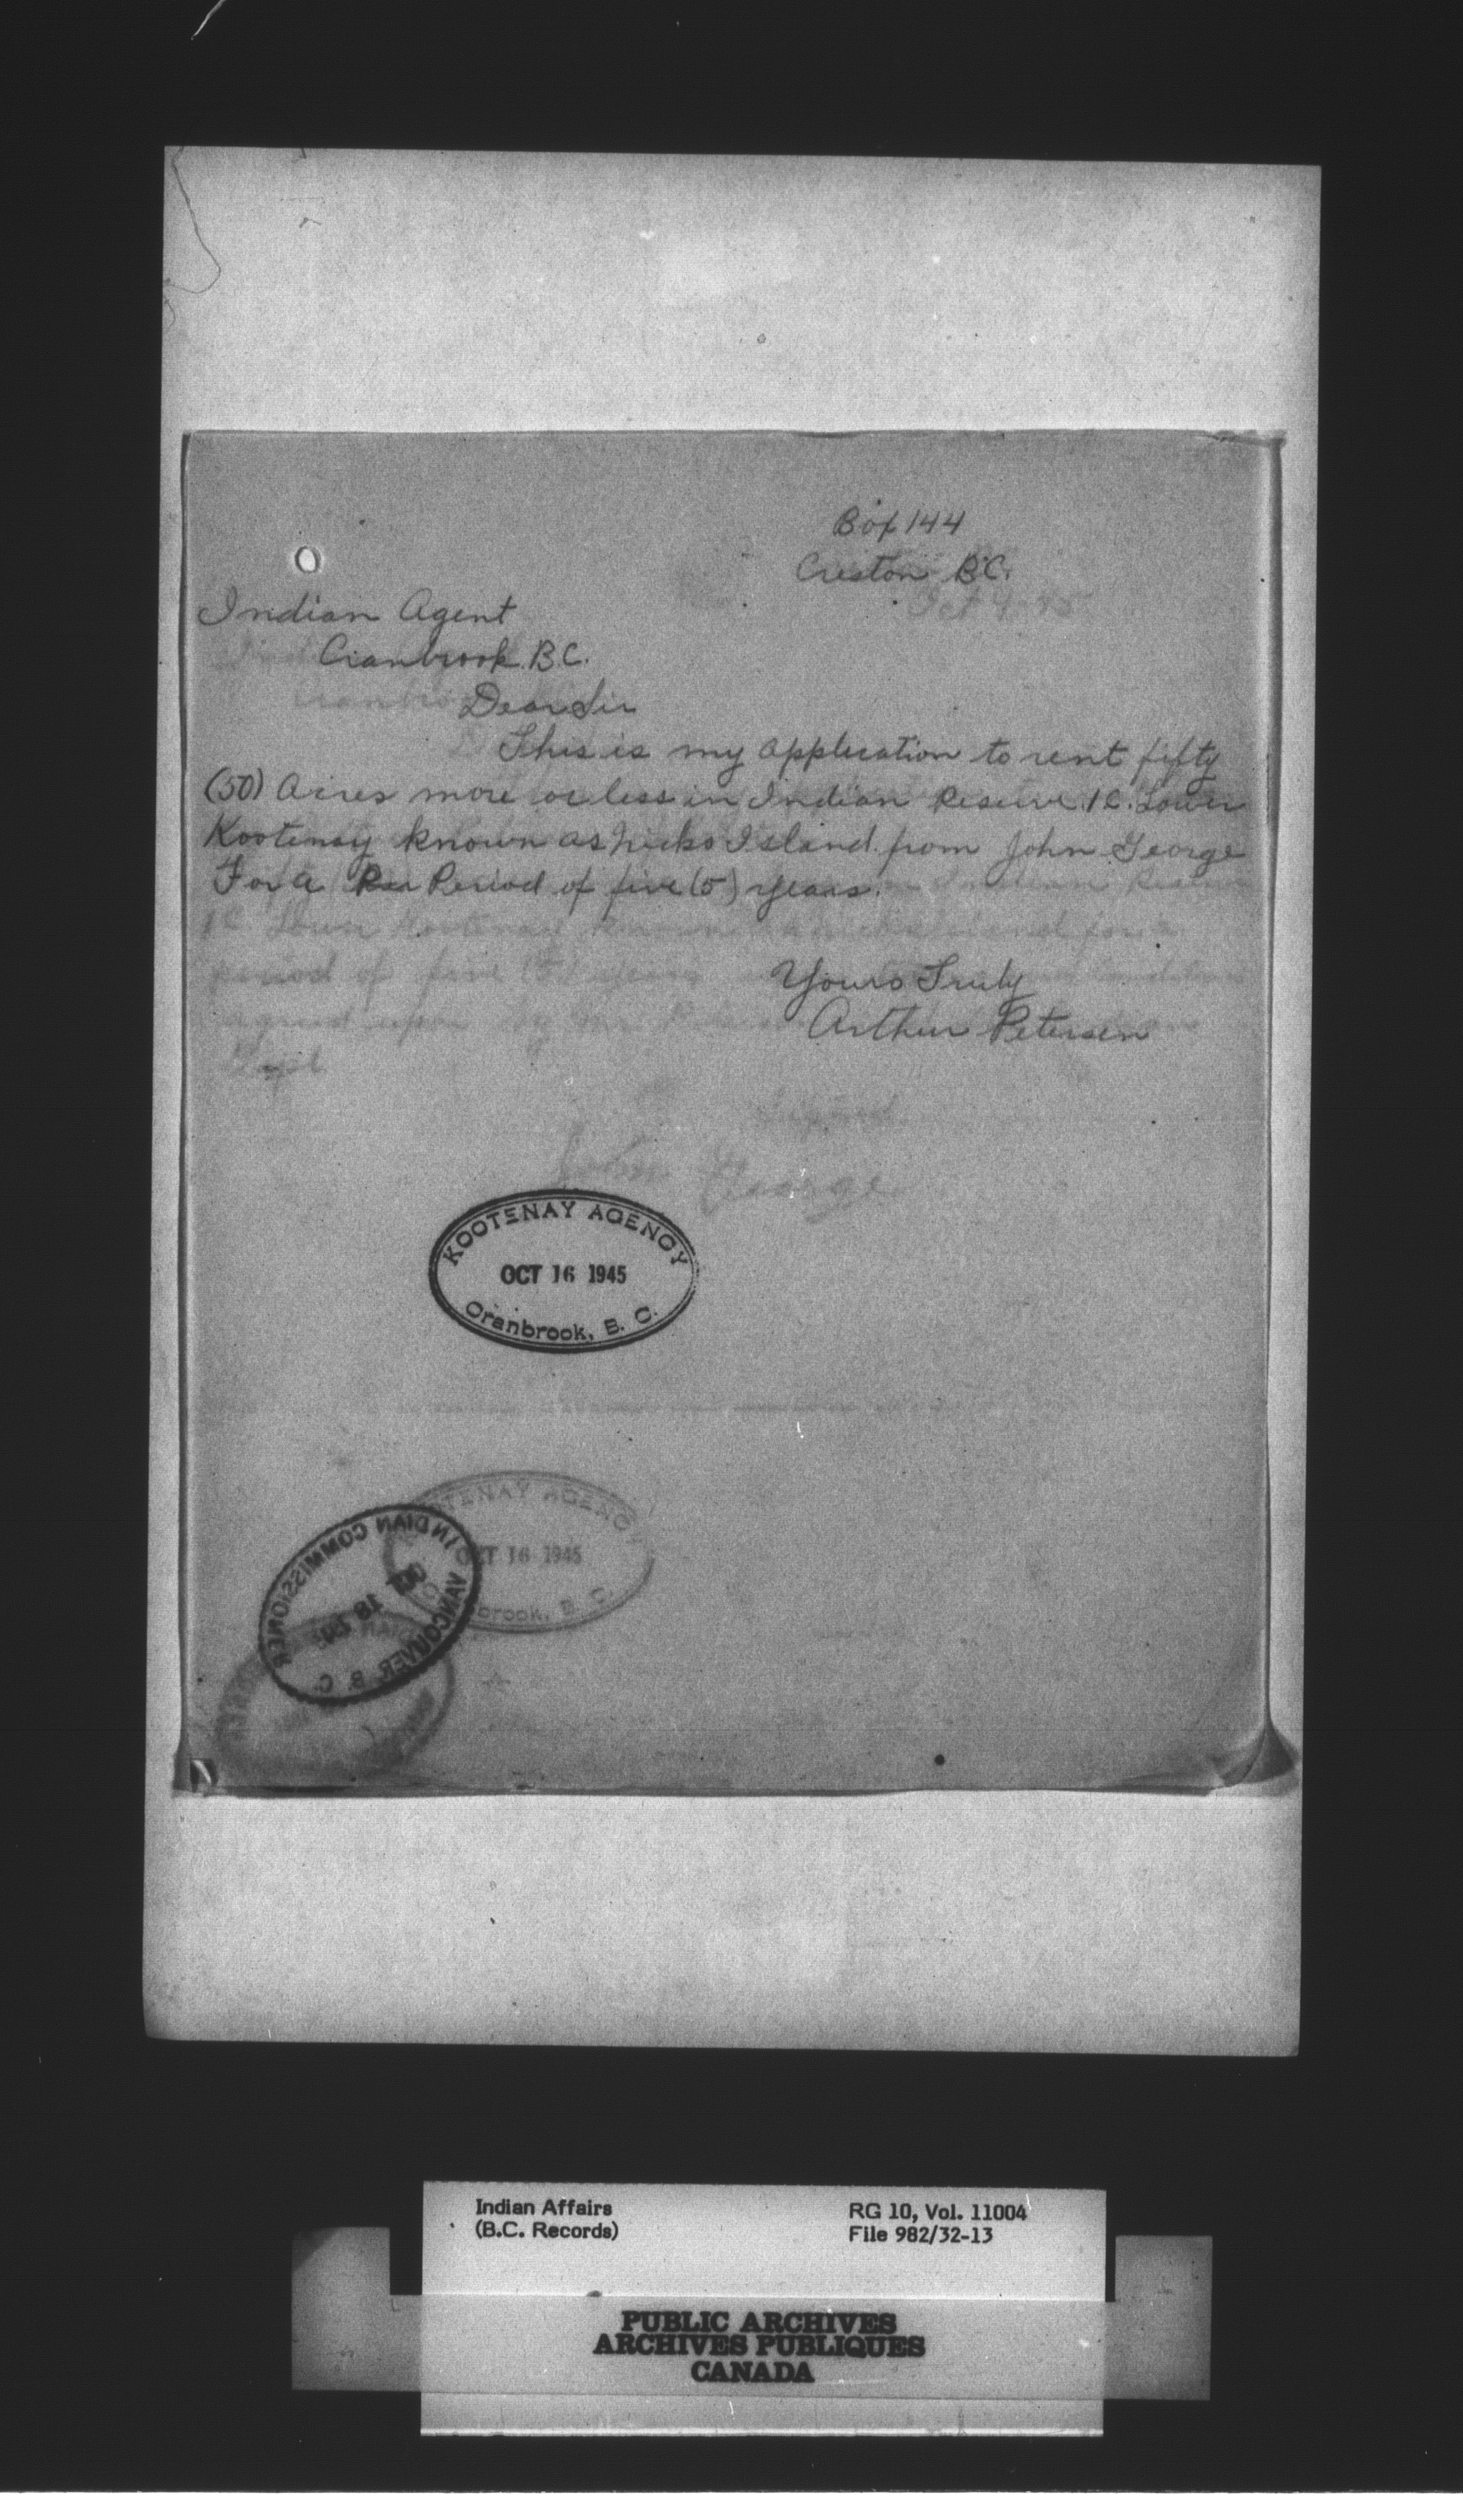 Box 144
Creston B.C.
Oct 9-45
Indian Agent
Cranbrook. B.C.
Dear Sir
This is my application to rent fifty
(50) Acres more or less in Indian Reserve. 1C. Lower
Kootenay known as Nicks Island. from John George
For a Per Period of five (5) years.
1C Lower Kootenay known
period of five (5) years
agreed upon by
Yours Truly
Arthur Petersen
Signed
John George
KOOTENAY AGENCY
OCT 16 1945
Cranbrook, B. C.
KOOTENAY AGENCY
OCT 16 1945
Cranbrook, B. C.
INDIAN COMMISSIONER
OCT 18
VANCOUVER B. C.
Indian Affairs
(B.C. Records)
RG 10, Vol. 11004
File 982/32-13
PUBLIC ARCHIVES
ARCHIVES PUBLIQUES
CANADA